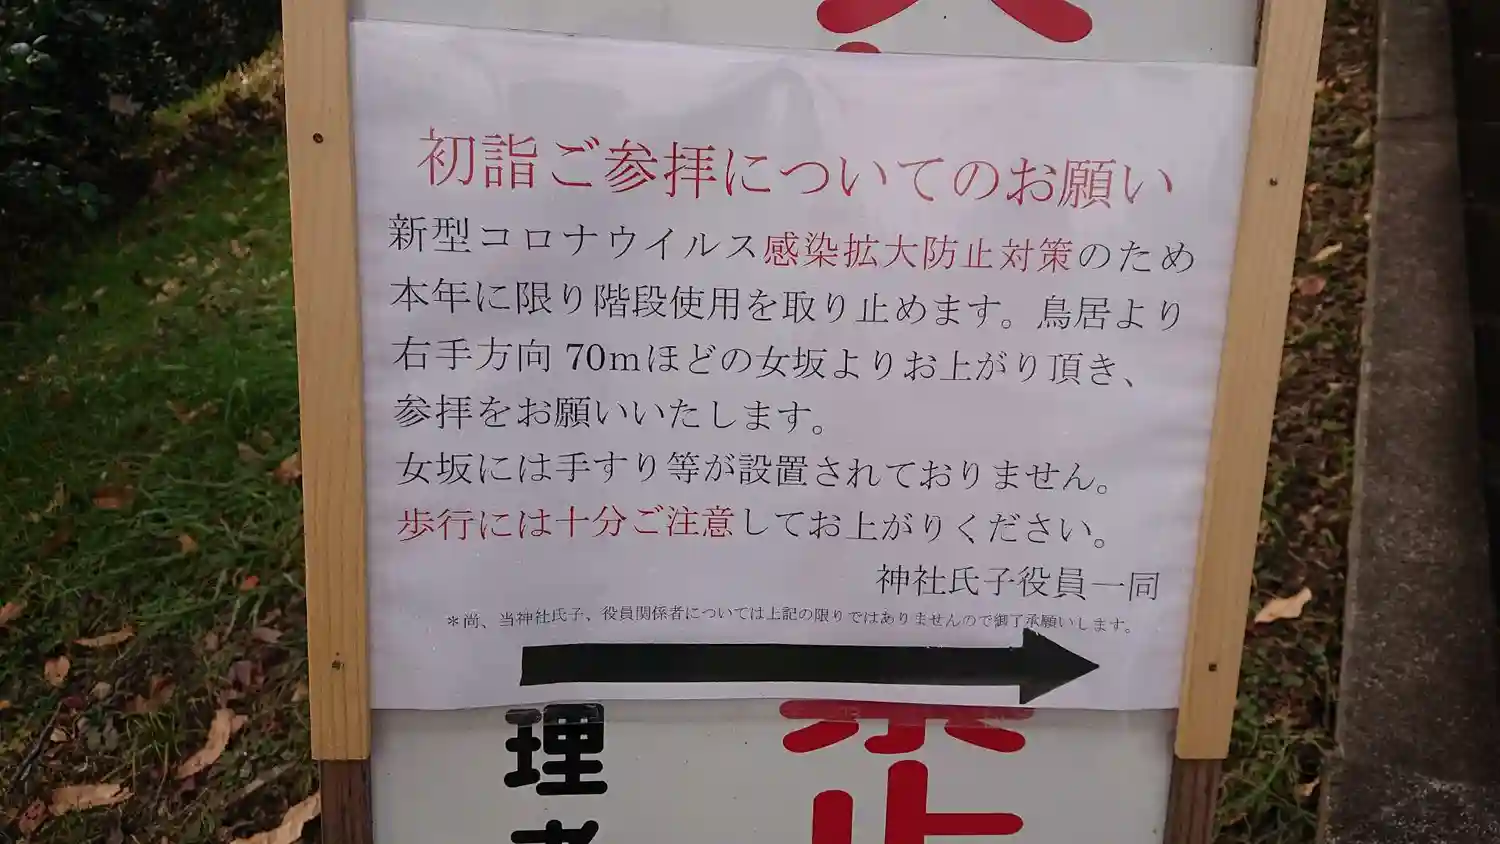 初詣ご参拝についてのお願い
新型コロナウイルス感染拡大防止対策のため
本年に限り階段使用を取り止めます。鳥居より
右手方向70mほどの女坂よりお上がり頂き、
参拝をお願いいたします。
女坂には手すり等が設置されておりません。
歩行には十分ご注意してお上がりください。
神社氏子役員一同
＊尚、当神社氏子、役員関係者については上記の限りではありませんので御了承願いします。
理
禁止